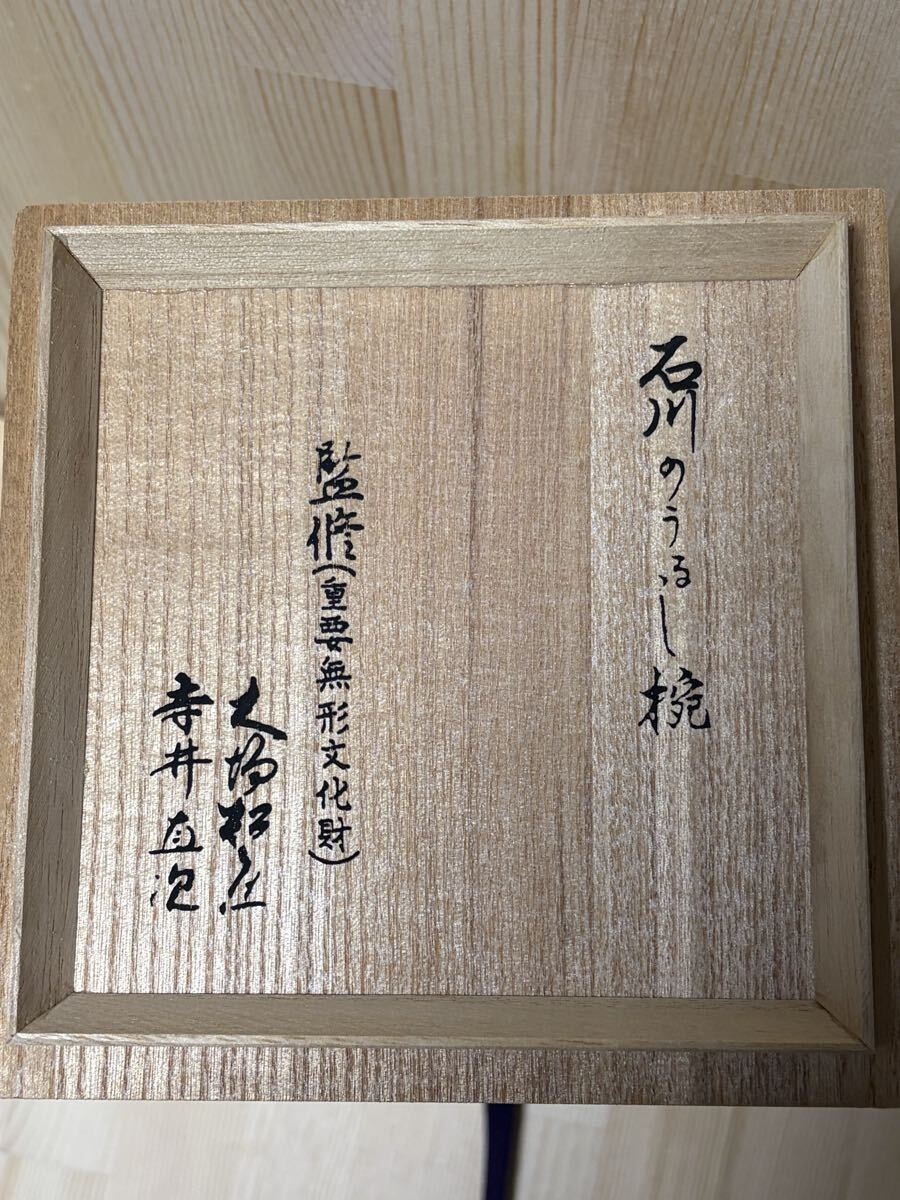 石川のうるし椀
監修(重要無形文化財)
大場松魚
寺井直次